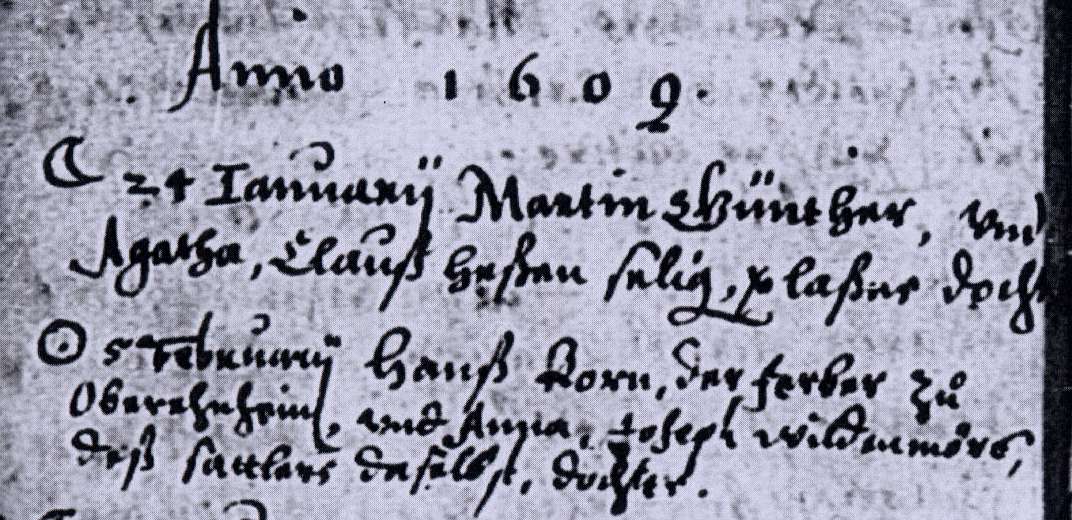 Anno 1609.
☾ 24 Ianuarij Martin Günther, vnd
Agatha, Clauß Heßen selig, laßer docht
☉ 5 Februarij Hanß Korn, der ferber zů
Oberehnheim, vnd Anna, Joseph
deß sattlers daselbst, dochter.